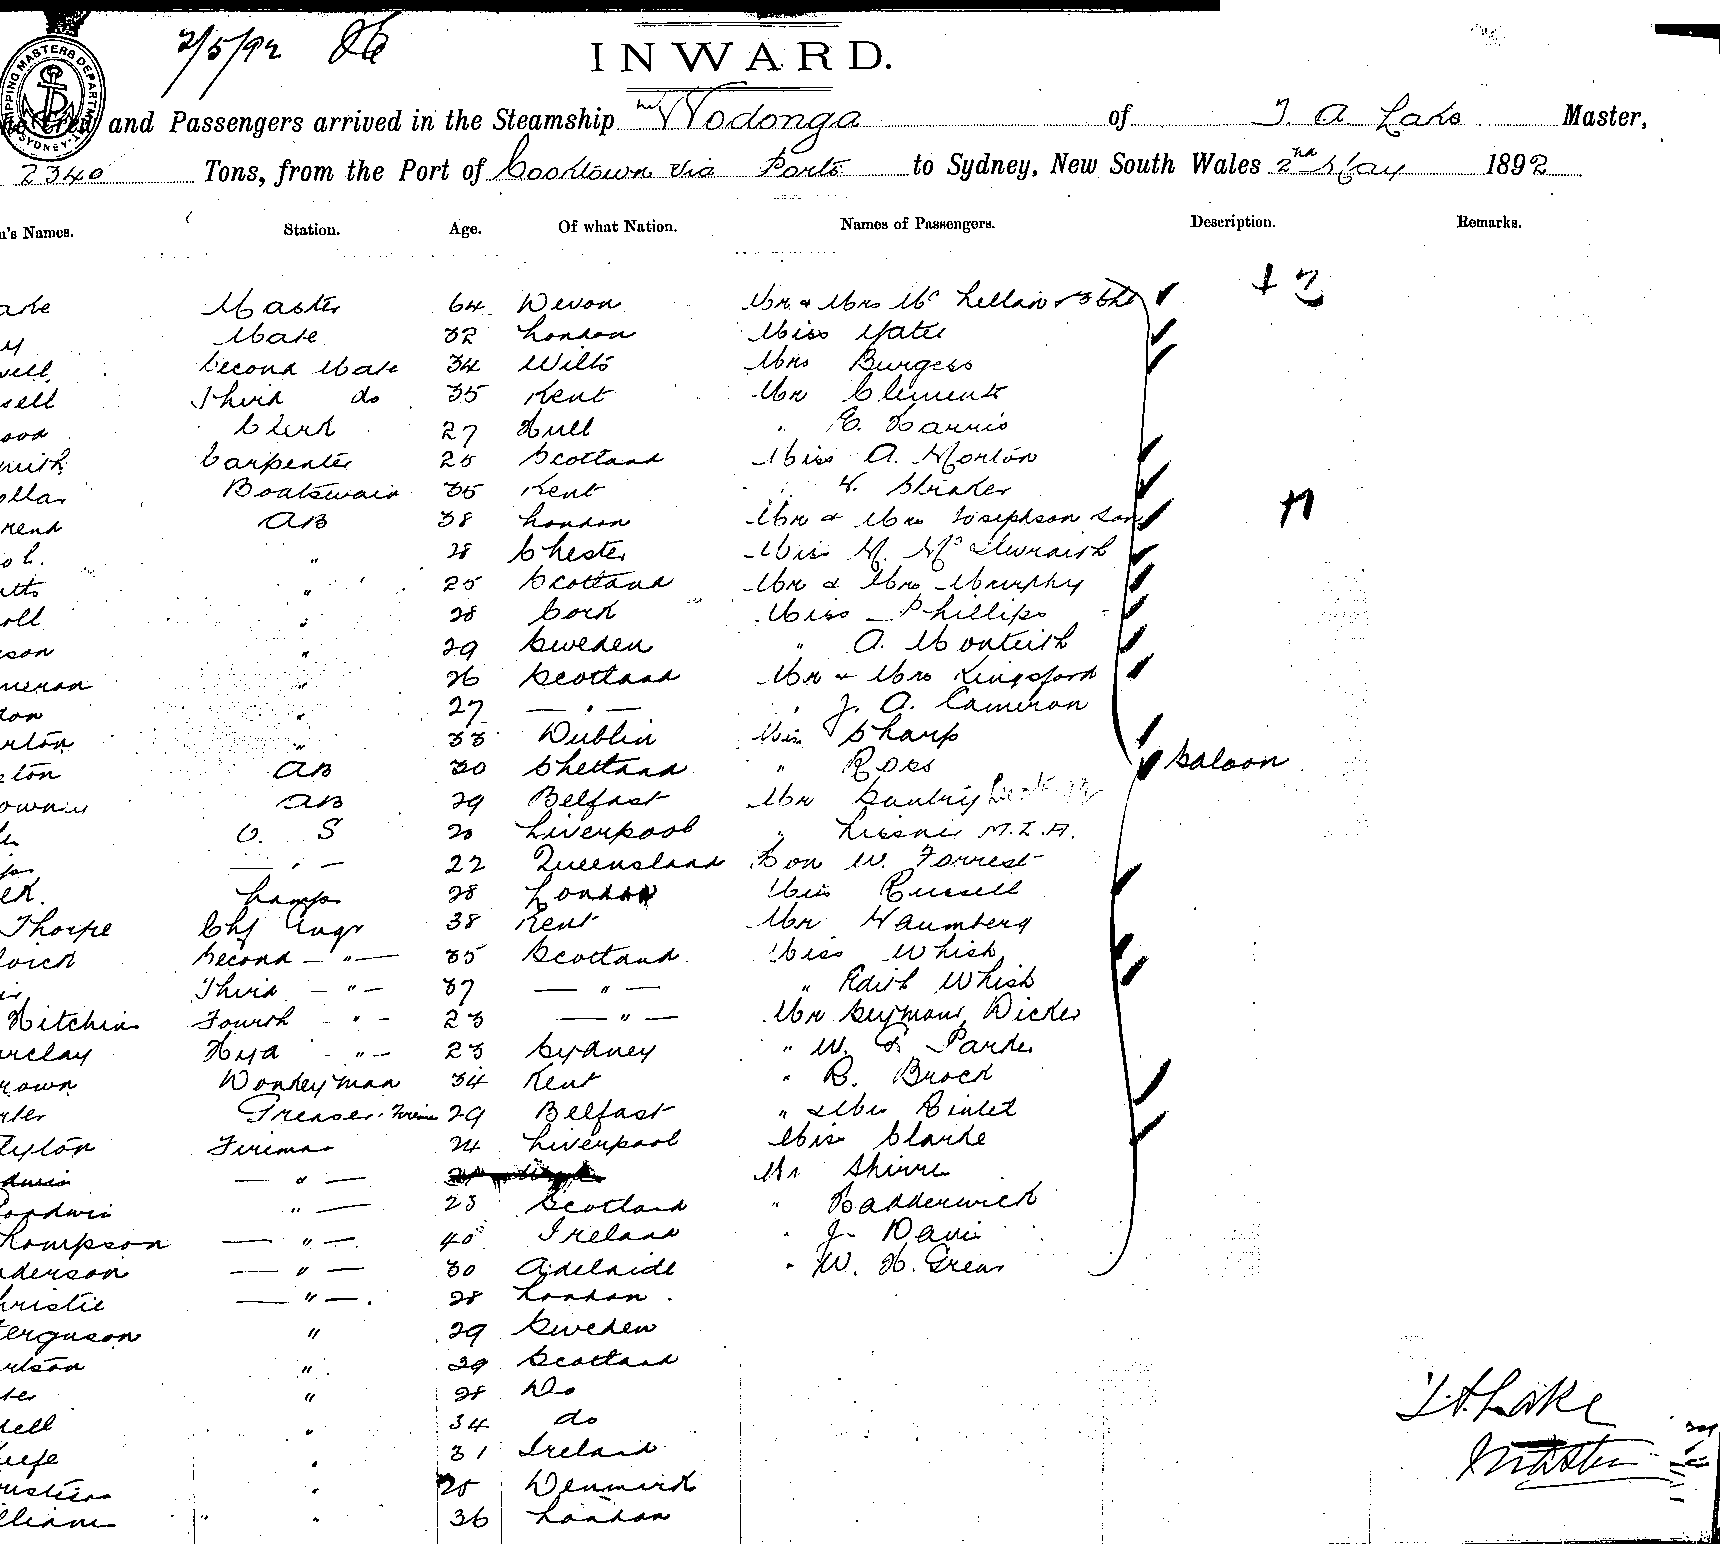 2/5/92
INWARD.
SHIPPING MASTERS DEPARTMENT SYDNEY
and Passengers arrived in the Steamship Wodonga of T. A. Lake Master,
2340 Tons, from the Port of Cooktown via Ports to Sydney, New South Wales 2nd May 1892
Names. Station. Age. Of what Nation. Names of Passengers. Description. Remarks.
Master 64 Devon Mr & Mrs Mc Lellan & 3 Chd
Mate 32 London Miss Yates
well Second Mate 34 Wilts Mrs Burgess
sell Third do 35 Kent Mr Clements
ood Clerk 27 Hull " E. Harris
mith Carpenter 25 Scotland Miss A. Morton
ollar Boatswain 35 Kent " Straker
rend AB 38 London Mr & Mrs Josephson Son
" 28 Chester Miss M. McIlwraith
tts " 25 Scotland Mr & Mrs Murphy
oll " 28 Cork Miss Phillips
son " 29 Sweden " A. Monteith
meron " 26 Scotland Mr & Mrs Kingsford
ton " 27 — " — " J. A. Cameron
rton " 33 Dublin Miss Sharp
ton AB 30 Shetland " Ross Saloon
AB 29 Belfast Mr
O. S 20 Liverpool " M.L.A.
— " — 22 Queensland Hon W. Forrest
Lamps 28 London Miss Russell
Thorpe Chf Engr 38 Kent Mr Naumberg
wick Second — " — 35 Scotland Miss Whish
Third — " — 37 — " — " Edith Whish
Hitchin Fourth — " — 23 — " — Mr Seymour Dicker
rclay — " — 23 Sydney " W. Parker
rown Donkeyman 34 Kent " B. Brock
rter Greaser 29 Belfast " & Mrs
yton Fireman 24 Liverpool Miss Clarke
— " — Mr Shirra
oodwin " — 23 Scotland " Hadderwick
hompson — " — 40 Ireland " J. Davis
derson — " — 30 Adelaide " W. H. Green
hristie — " — 28 London
erguson " 29 Sweden
rlson " 39 Scotland
" 28 Do
dell " 34 do
eefe " 31 Ireland
" 25 Denmark
lliams " 36 London
T. A. Lake
Master